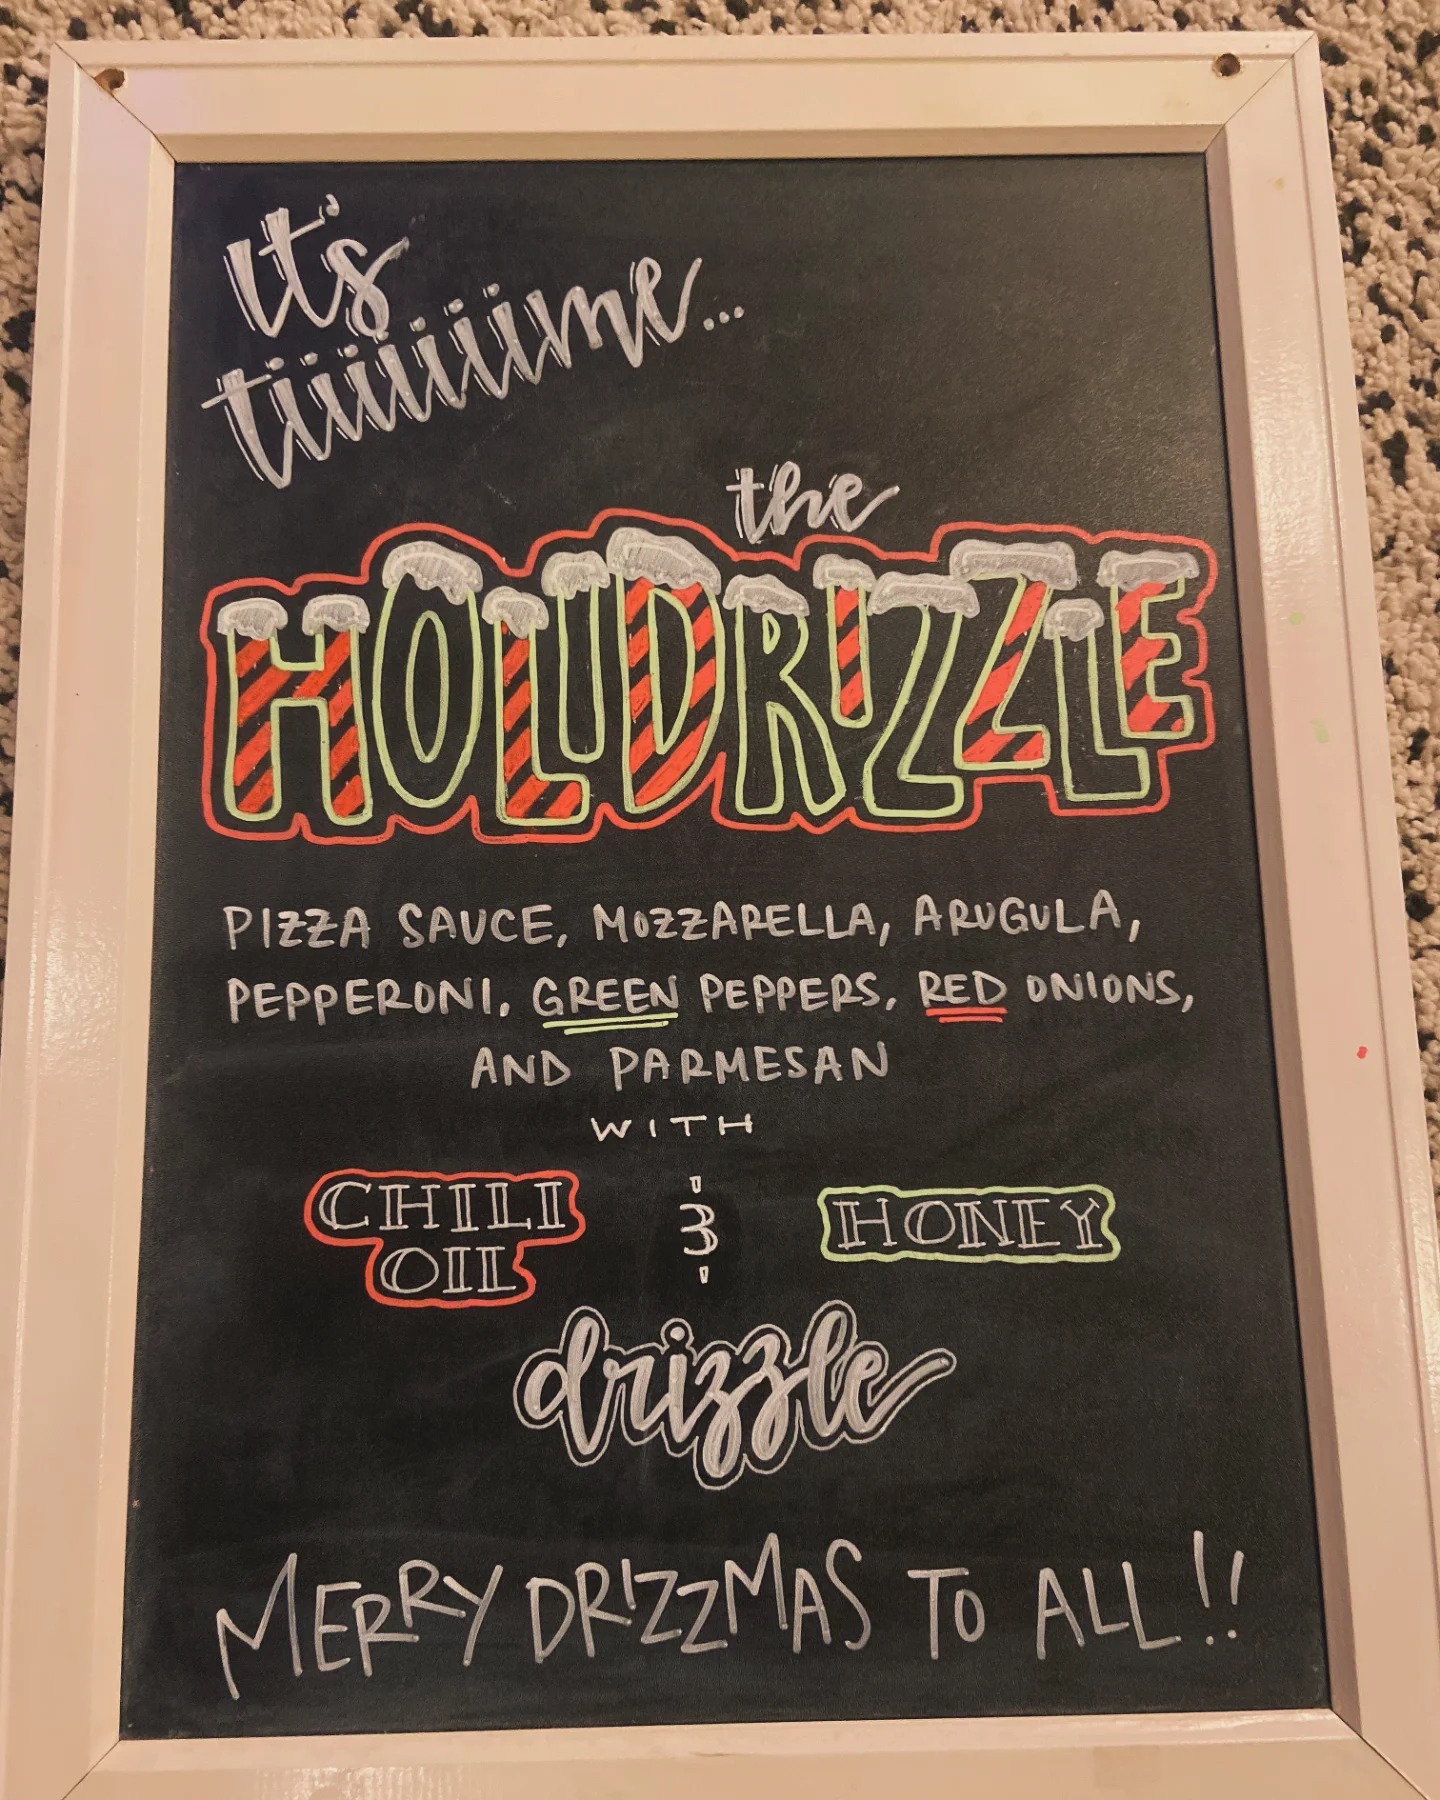 It's
tiiiiiiime...
the
HOLIDRIZZLE
PIZZA SAUCE, MOZZARELLA, ARUGULA,
PEPPERONI, GREEN PEPPERS, RED ONIONS,
AND PARMESAN
WITH
CHILI OIL & HONEY
drizzle
MERRY DRIZZMAS TO ALL!!